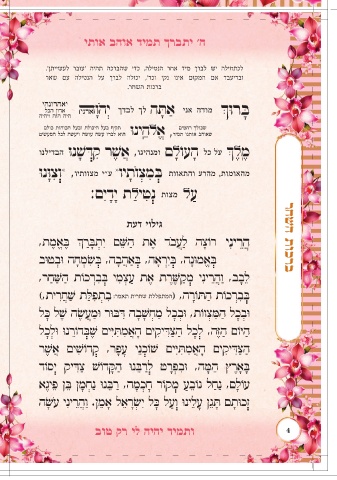 ה' יתברך תמיד אוהב אותי
לכתחילה יש לברך מיד אחר הנטילה, כדי שהברכה תהיה 'עובר לעשייתן',
ובדיעבד אם המקום אינו נקי וכד', יכולה לברך על הנטילה עם שאר
ברכות השחר.
בָּרוּךְ מודה אני אַתָּה לך לברך יְהֹוָה
אֱלֹהֵינוּ
מֶלֶךְ על כל הָעוֹלָם ומנהיגו, אֲשֶׁר קִדְּשָׁנוּ הבדילנו
מהאומות, מהרע והתאוות בְּמִצְוֹתָיו ע"י מצוותיו, וְצִוָּנוּ
עַל מצות נְטִילַת יָדָיִם:
גילוי דעת
הֲרֵינִי רוֹצָה לַעֲבֹד אֶת הַשֵּׁם יִתְבָּרַךְ בֶּאֱמֶת,
בֶּאֱמוּנָה, בְּיִרְאָה, בְּאַהֲבָה, בְּשִׂמְחָה וּבְטוּב
לֵבָב, וַהֲרֵינִי מְקַשֶּׁרֶת אֶת עַצְמִי בְּבִרְכוֹת הַשַּׁחַר,
בְּבִרְכוֹת הַתּוֹרָה, (המתפללת שחרית תאמר: בִּתְפִלַּת שַׁחֲרִית,)
וּבְכָל הַמִּצְווֹת, וּבְכָל מַחֲשָׁבָה דִּבּוּר וּמַעֲשֶׂה שֶׁל כָּל
הַיּוֹם הַזֶּה, לְכָל הַצַּדִּיקִים הָאֲמִתִּיִּים שֶׁבְּדוֹרֵנוּ וּלְכָל
הַצַּדִּיקִים הָאֲמִתִּיִּים שׁוֹכְנֵי עָפָר, קְדוֹשִׁים אֲשֶׁר
בָּאָרֶץ הֵמָּה, וּבִפְרָט לְרַבֵּנוּ הַקָּדוֹשׁ צַדִּיק יְסוֹד
עוֹלָם, נַחַל נוֹבֵעַ מְקוֹר חָכְמָה, רַבֵּנוּ נַחְמָן בֶּן פֵיגֶא
זְכוּתָם תָּגֵן עָלֵינוּ וְעַל כָּל יִשְׂרָאֵל אָמֵן. וַהֲרֵינִי עוֹשָׂה
ותמיד יהיה לי רק טוב
ברכות השחר
4